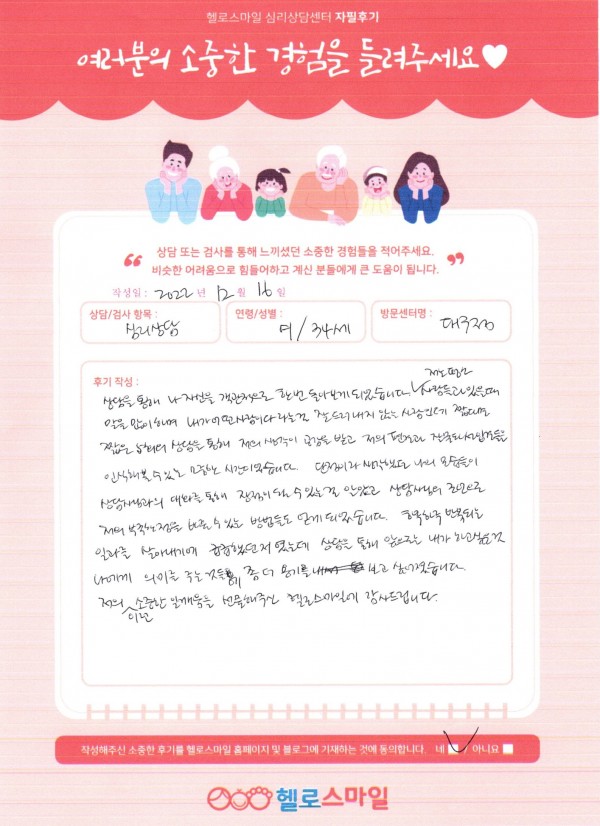 헬로스마일 심리상담센터 자필후기
여러분의 소중한 경험을 들려주세요♥
상담 또는 검사를 통해 느끼셨던 소중한 경험들을 적어주세요.
“ 비슷한 어려움으로 힘들어하고 계신 분들에게 큰 도움이 됩니다. ”
작성일 : 2022 년 12 월 16 일
상담/검사 항목 : 심리상담
연령/성별 : 여 / 34세
방문센터명 : 대구점
후기 작성 :
상담을 통해 나 자신을 객관적으로 한번 돌아보게 되었습니다. 사람들과 있을때
말을 많이하며 내가 어떤사람이다라는걸 잘 드러내지 않는 사람인데 짧다면
짧은 상담을 통해 저의 생각이 공감을 받고 저의
인식해볼 수 있는 소중한 시간이었습니다. 단점이라 생각했던 나의 모습들이
상담사님과의 대화를 통해 장점이 되는 수 있는걸 알았고 상담사님의 조언으로
저의 부족한점을 채울 수 있는 방법들도 얻게 되었습니다. 하루하루 반복되는
일과를 살아내기에 급급했던 저였는데 상담을 통해 앞으로는 내가 하고싶은것
나에게 의미를 주는 것들에 좀 더 용기를 내 보고 싶어졌습니다.
저의 이런 소중한 일깨움을 선물해주신 헬로스마일에 감사드립니다.
작성해주신 소중한 후기를 헬로스마일 홈페이지 및 블로그에 기재하는 것에 동의합니다. 네 아니요
헬로스마일